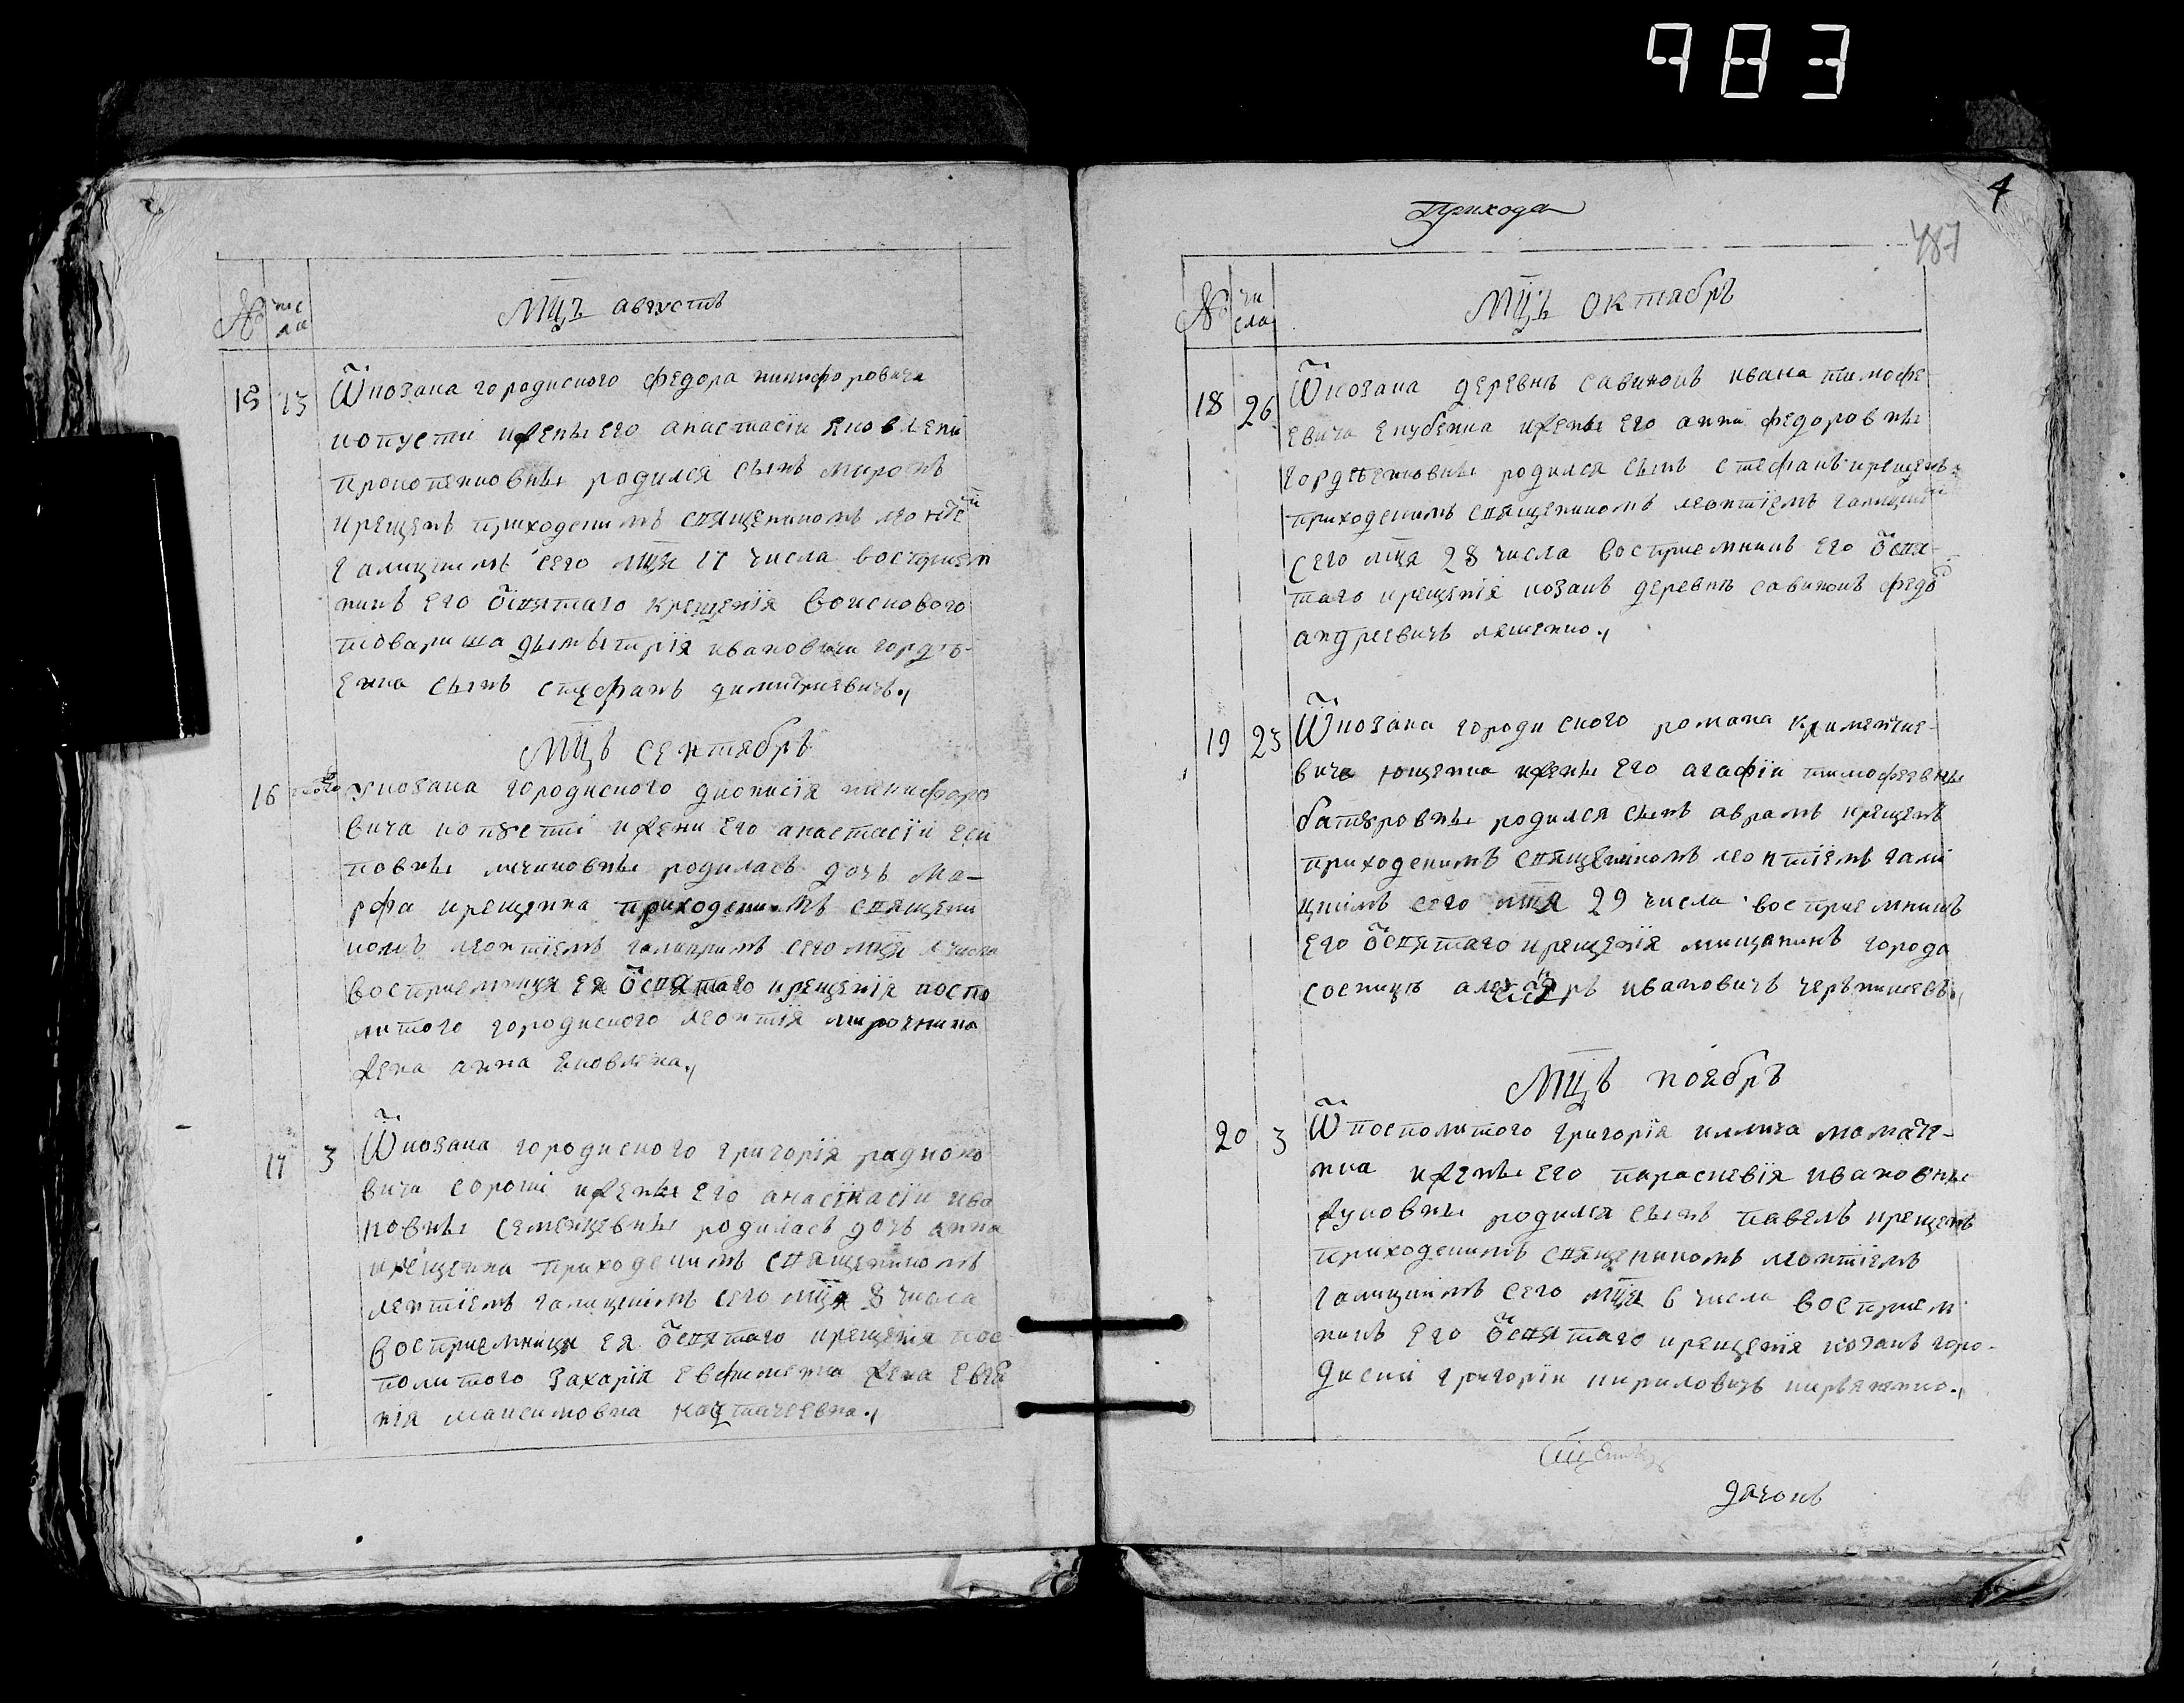 983
№ чис ла
Мцъ августъ
15 15 Ѿ козака городиского федора никифоровича
копусти и жены его анастасіи яковлени
прокопенковны родился сынъ миронъ
крещенъ приходскимъ священикомъ леонтіе
галицкимъ сего мця 17 числа восприем
никъ его ѿ святаго крещенія войскового
товариша дымытрія ивановича гордѣ-
енка сынъ стефанъ димитриевичъ.,
Мцъ сентябрь
16 у козака городиского дионисія никифоро
вича копусти и жени его анастасіи
повны родилась дочь ма-
рфа крещенна приходскимъ священи
комъ леонтіемъ галицкимъ сего мця числа
восприемница ея ѿ святаго крещенія поспо
литого городиского леонтія мирочника
жена анна яковлена.,
17 3 Ѿ козака городиского григорія радионо
вича сороки и жены его анастасіи ива
новны семенцевны родилась дочь анна
крещенна приходскимъ священикомъ
лентіемъ галицкимъ сего мця 8 числа
восприемница ея ѿ святаго крещенія пос-
политого Захарія евфименка жена евге
нія максимовна
Прихода
4
487
№ чи сла
Мцъ октябрь
18 26 Ѿ козака деревнѣ савинокъ ивана тимофе-
евича якубенка и жены его анни федоровны
гордѣенковны родился сынъ стефанъ крещенъ
приходскимъ священикомъ леонтіемъ галицкій
сего мця 28 числа восприемникъ его ѿ свя-
таго крещенія козакъ деревнѣ савинокъ федо
андреевичъ ляшенко.,
19 25 Ѿ козака городиского романа
вича ющенка и жены его агафіи тимофеевны
батѹровны родился сынъ аврамъ крещенъ
приходскимъ священикомъ леонтіемъ гали
цкимъ сего мця 29 числа восприемникъ
его ѿ святаго крещенія мищанинъ города
сосницѣ александръ ивановичъ
Мцъ ноябрь
20 3 Ѿ посполитого григорія иллича
нка и жены его параскевія ивановны
жуковны родился сынъ павелъ крещенъ
приходскимъ священикомъ леонтіемъ
галицкимъ сего мця 6 числа восприем
никъ его ѿ святаго крещенія козакъ горо-
диский григорій кириловичъ
дячокъ